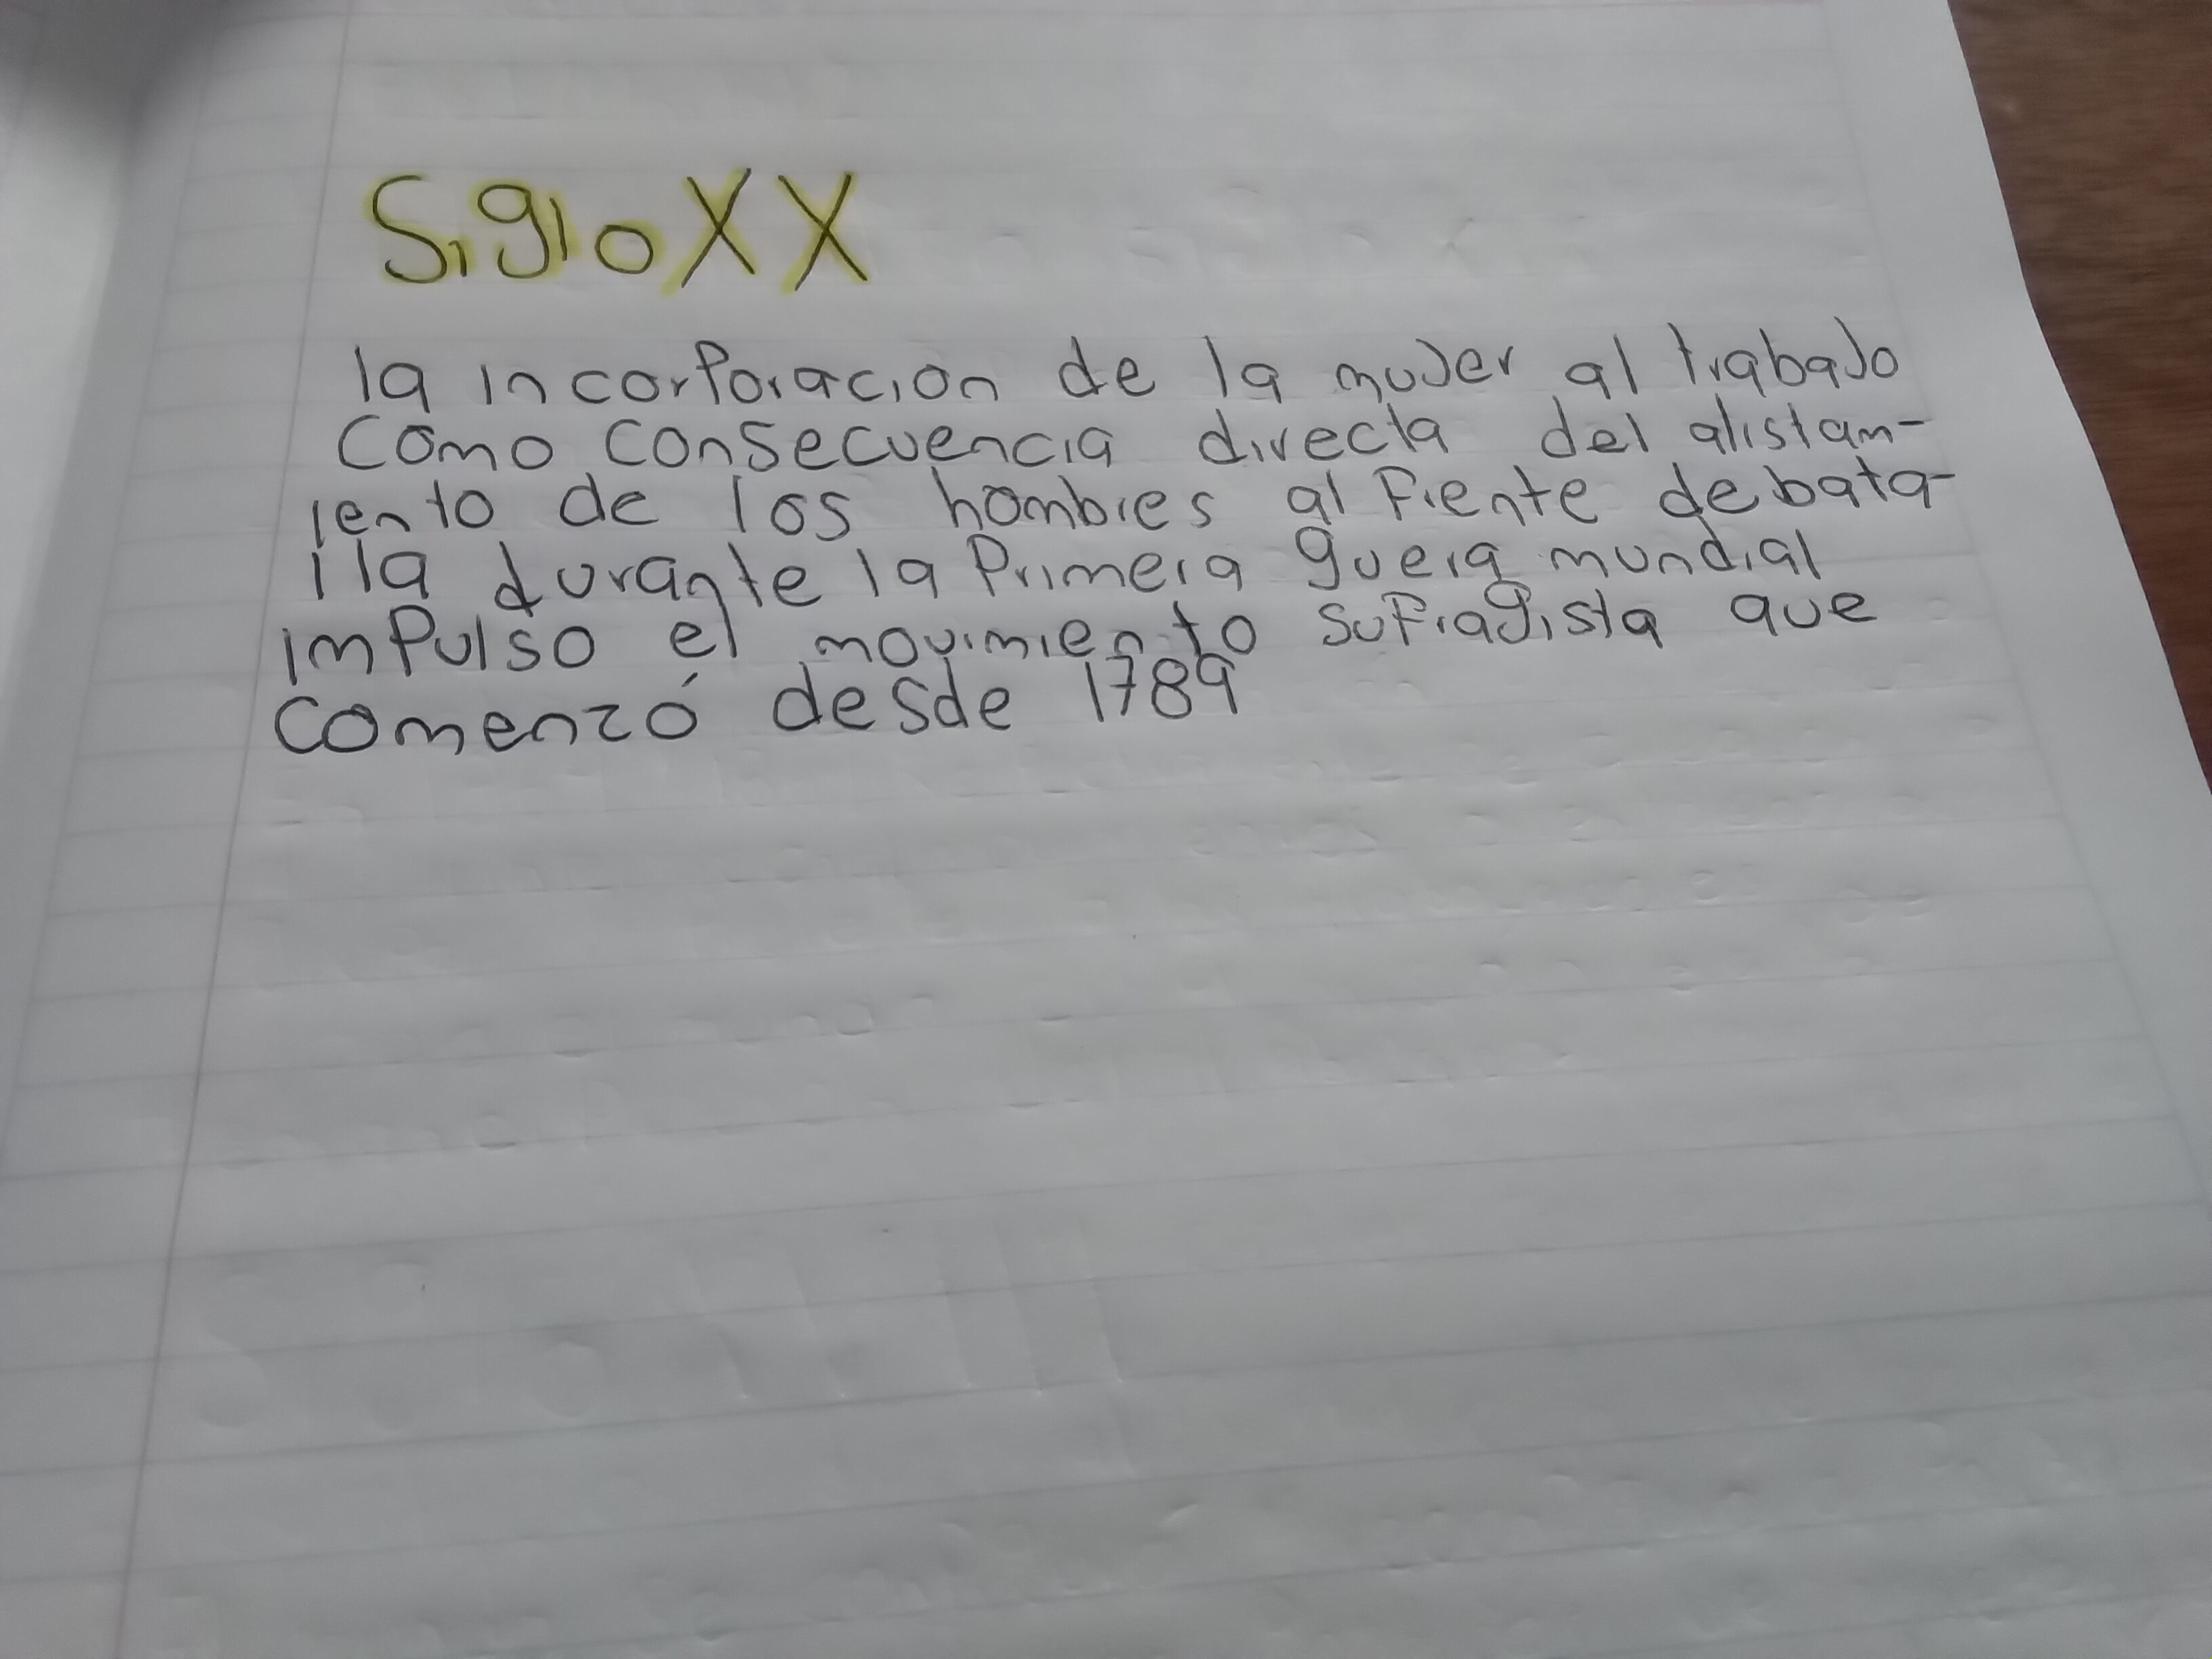 Siglo XX
la incorporacion de la mujer al trabajo
como consecuencia directa del alistam-
iento de los hombres al frente de bata-
lla durante la primera guera mundial
impulso el movimiento sufragista que
comenzó desde 1789